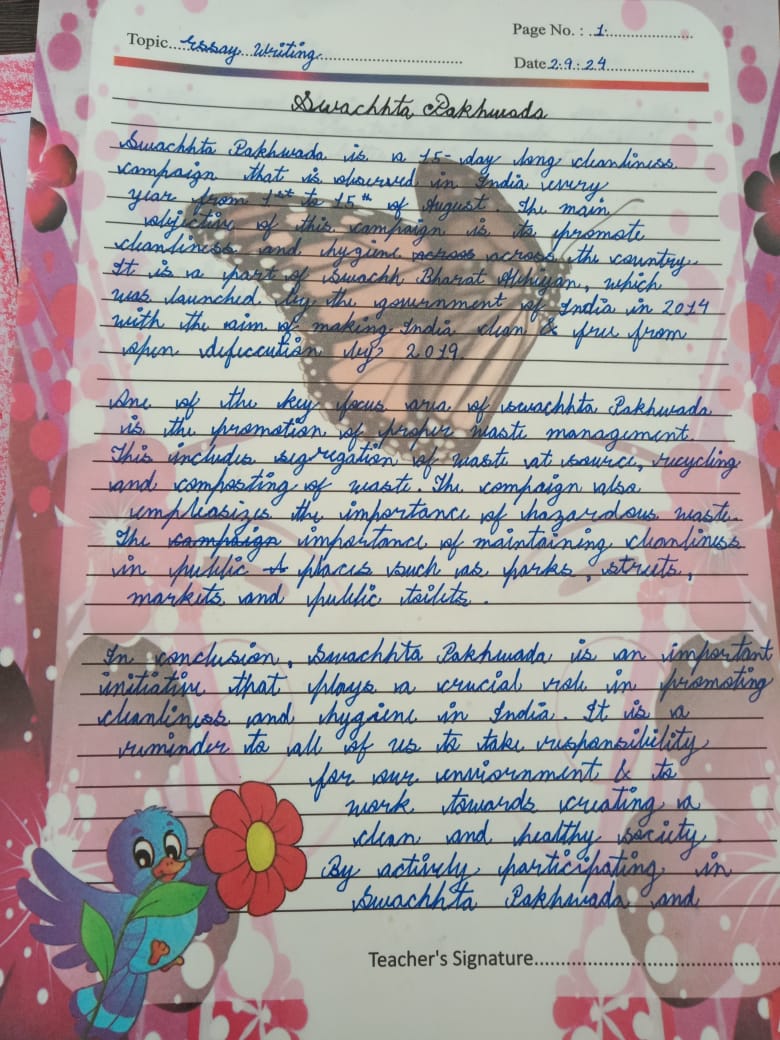 Topic....Essay Writing....
Page No. : .1.
Date 2.9.24
Swachhta Pakhwada
Swachhta Pakhwada is a 15-day long cleanliness
campaign that is observed in India every
year from 1st to 15th of August. The main
objective of this campaign is to promote
cleanliness and hygiene across across the country.
It is a part of Swachh Bharat Abhiyan, which
was launched by the government of India in 2014
with the aim of making India clean & free from
open defeccution by 2019.
One of the key focus area of swachhta Pakhwada
is the promotion of proper waste management.
This includes segregation of waste at source, recycling
and composting of waste. The campaign also
emphasizes the importance of hazardous waste.
The campaign importance of maintaining cleanliness
in public places such as parks, streets,
markets and public toilets.
In conclusion, Swachhta Pakhwada is an important
initiative that plays a crucial role in promoting
cleanliness and hygiene in India. It is a
reminder to all of us to take responsibility
for our enviornment & to
work towards creating a
clean and healthy society.
By actively participating in
Swachhta Pakhwada and
Teacher's Signature....................